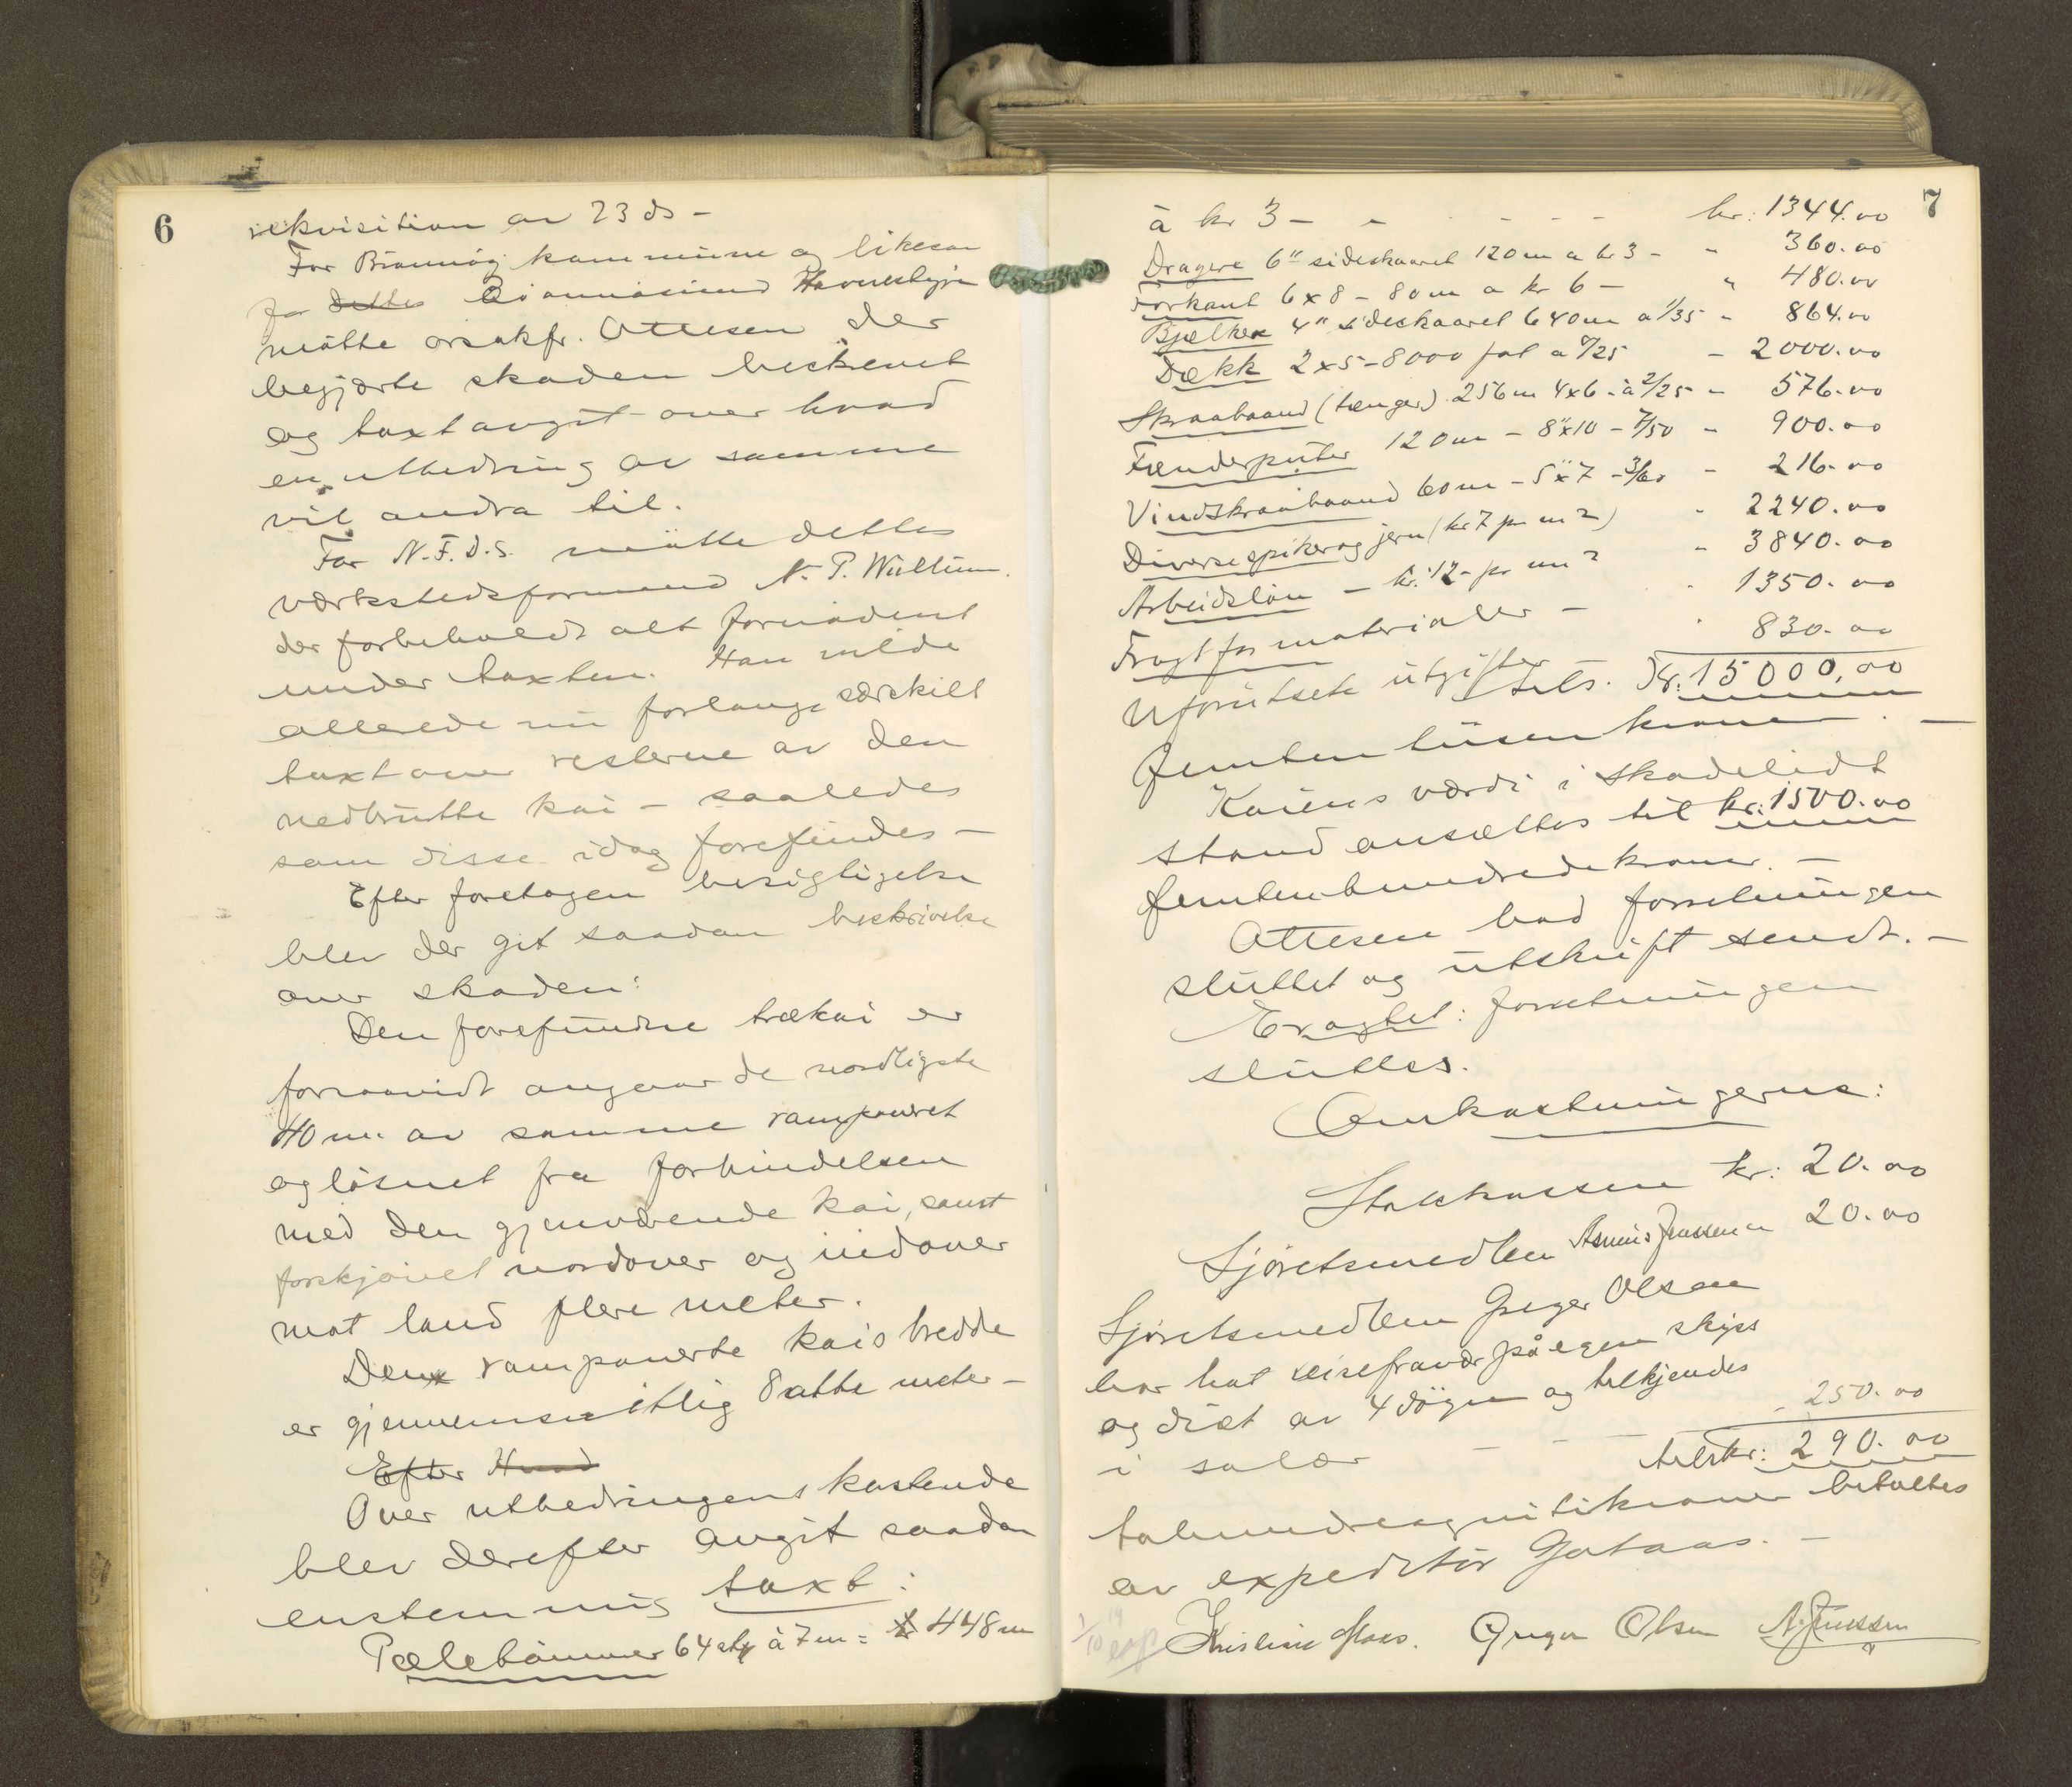 6
rekvisition av 23 ds -
For Brønnøy kommune og likesaa
for dettes Brønnøsund Havnestyre
møtte orsakfr. Ottesen der
begjærte skaden beskrevet
og taxt avgit over hvad
en utbedring av samme
vil andra til.
For N.F.D.S. møtte dettes
værkstedsformand N. P. Wultum.
der forbeholdt alt fornødent
under taxten. Han vilde
allerede nu forlange særskilt
taxt over resterne av den
nedbrutte kai - saaledes
som disse idag forefindes -
Efter foretagen besigtigelse
blev der git saadan beskrivelse
over skaden:
Den forefundne trækai er
forsaavidt angaar de nordligste
40 m. av samme ramponeret
og løsnet fra forbindelsen
med den gjenværende kai, samt
forskjøvet nordover og indover
mot land flere meter.
Den ramponerte kais bredde
er gjennemsnitlig 8 otte meter -
Efter Hvad
Over utbedringens kostende
blev derefter avgit saadan
enstemmig taxt:
Pæletømmer 64 stk à 7 m = 448 m
7
à kr 3 - - - - - - kr: 1344.00
Dragere 6" sideskaaret 120 m a kr 3 - " 360.00
Forkant 6x8 - 80 m a kr 6 - " 480.00
Bjelker 4" sideskaaret 640 m a 1/35 - 864.00
Dækk 2x5 - 8000 fot a 0/25 - 2000.00
Skraabaand (tænger) 256 m 4x6 - à 2/25 - 576.00
Fænderputer 120 m - 8"x10 - 7/50 - 900.00
Vindskraabaand 60 m - 5"x7 - 3/60 - 216.00
Diverse spiker og jern (kr 7 pr m2) - 2240.00
Arbeidsløn - kr. 12 - pr m 2 " 3840.00
Fragt for materialer - " 1350.00
Uforutsete utgifter " 830.00
Tils. Kr. 15000,00
femten tusen kroner. -
Kaiens værdi i skadelidt
stand ansættes til kr: 1500.00
femtenhundrede kroner. -
Ottesen bad forretningen
sluttet og utskrift sendt. -
Eragtet: forretningen
sluttes.
Omkostningerne:
Statskassen kr: 20.00
Sjøretsmedlem Asmus Jenssen " 20.00
Sjøretsmedlem Greger Olsen
har hat reisefravær på egen skyss
og diæt av 4 døgn og tilkjendes
i salær - - - - 250.00
tils kr: 290.00
tohundreognitikroner betaltes
av expeditør Gutaas. -
Kristian Moas. Greger Olsen A. Jenssen